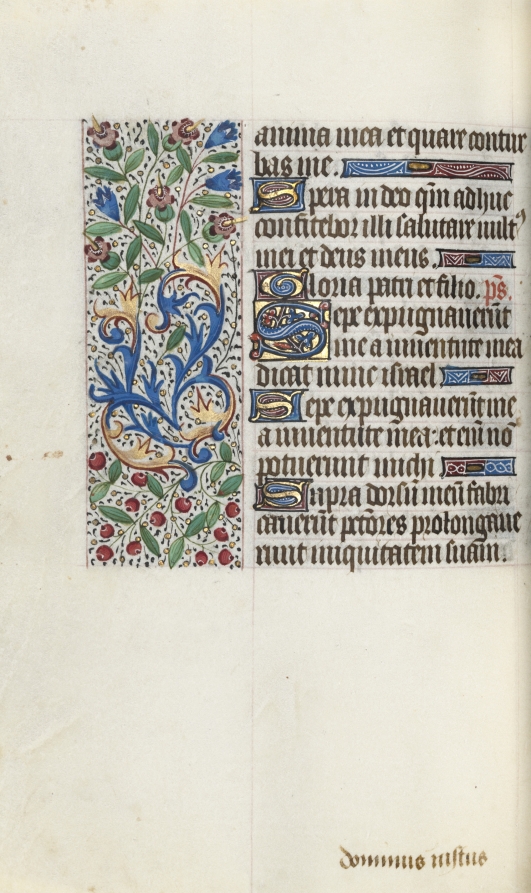 anima mea et quare contur
bas me.
Spera in deo qm̄ adhuc
confitebor illi salutare vult⁹
mei et deus meus.
Gloria patri et filio. ps̄.
Sepe expugnauerūt
me a iuuentute mea
dicat nunc israel
Sepe expugnauerūt me
a iuuentute mea: et em̄ nō
potuerunt michi
Supra dorsū meū fabri
cauerūt pctōres prolongaue
runt iniquitatem suam.
dominus iustus